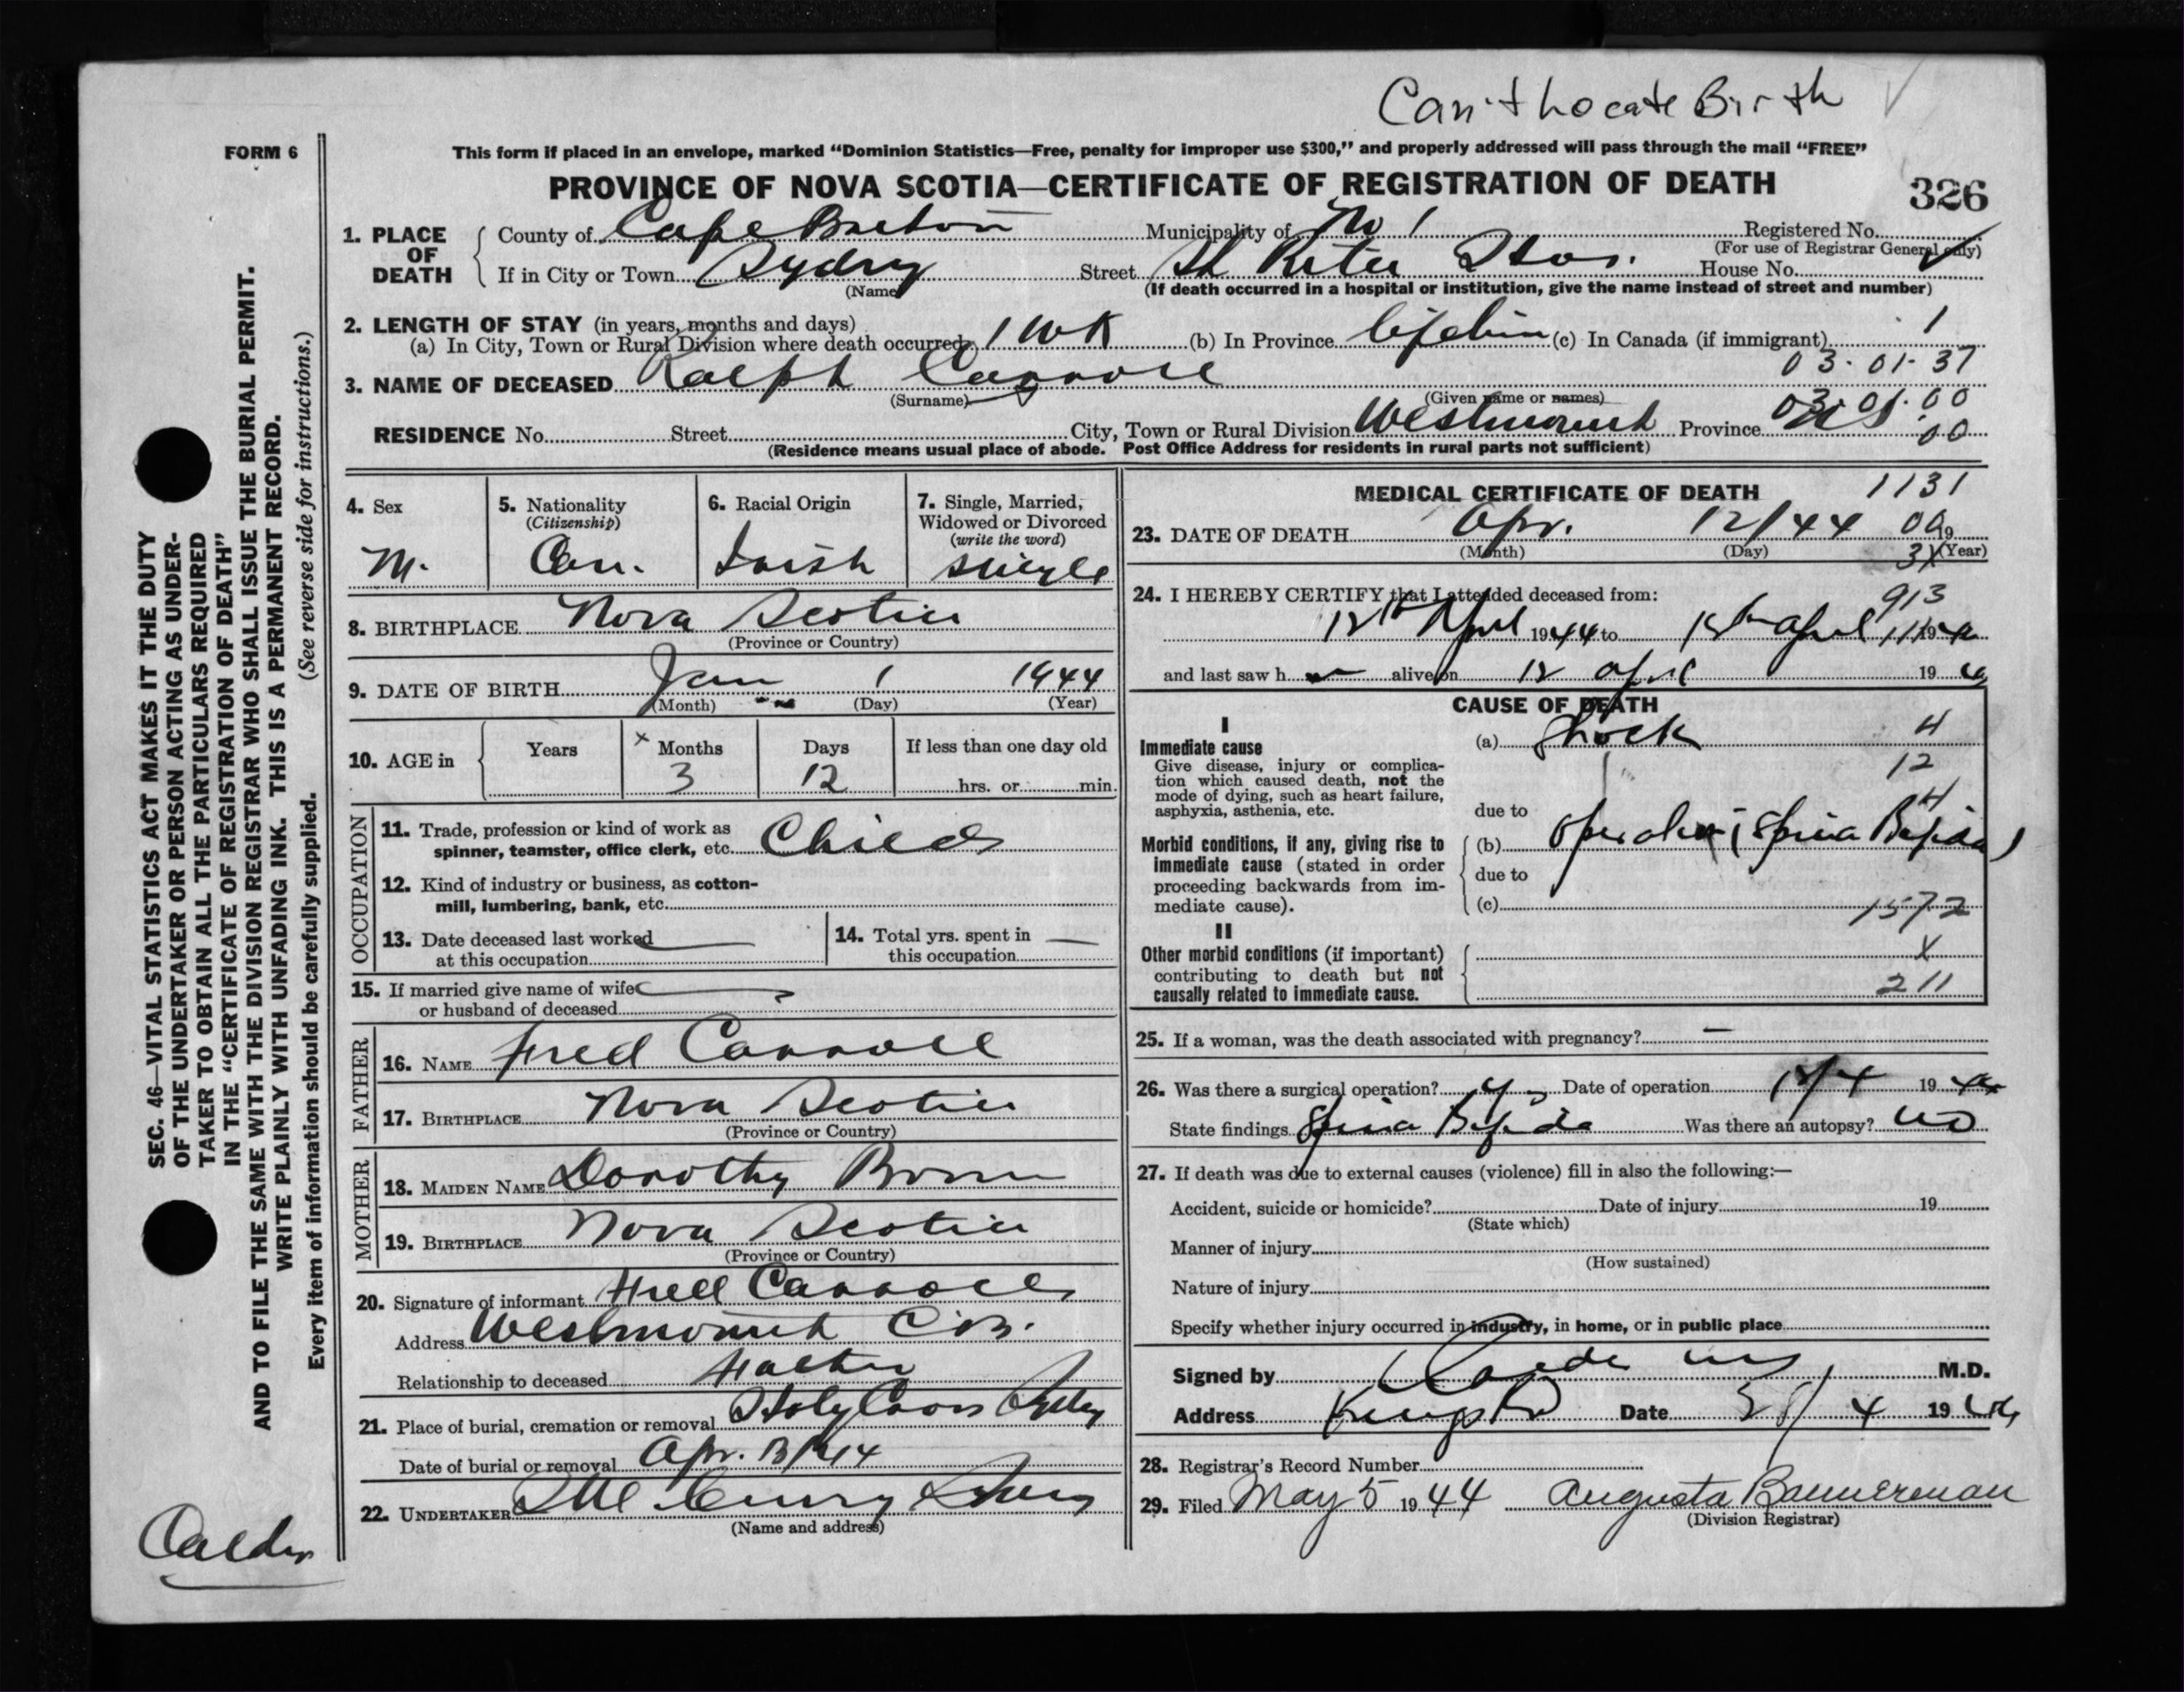 Can't Locate Birth
FORM 6
This form if placed in an envelope, marked "Dominion Statistics—Free, penalty for improper use $300," and properly addressed will pass through the mail "FREE"
PROVINCE OF NOVA SCOTIA—CERTIFICATE OF REGISTRATION OF DEATH
326
1. PLACE OF DEATH
County of Cape Breton Municipality of No 1 Registered No.
(For use of Registrar General only)
If in City or Town Sydney Street St Rita Hos. House No.
(Name) (If death occurred in a hospital or institution, give the name instead of street and number)
2. LENGTH OF STAY (in years, months and days)
(a) In City, Town or Rural Division where death occurred 1 WK (b) In Province lifetime (c) In Canada (if immigrant) 1
03-01-37
3. NAME OF DECEASED Ralph Carroll
(Surname) (Given name or names)
03-01-00
RESIDENCE No. Street City, Town or Rural Division Westmount Province NS
00
(Residence means usual place of abode. Post Office Address for residents in rural parts not sufficient)
4. Sex
M.
5. Nationality
(Citizenship)
Can.
6. Racial Origin
Irish
7. Single, Married,
Widowed or Divorced
(write the word)
Single
8. BIRTHPLACE Nova Scotia
(Province or Country)
9. DATE OF BIRTH Jan 1 1944
(Month) (Day) (Year)
10. AGE in
Years x Months Days If less than one day old
3 12 hrs. or min.
OCCUPATION
11. Trade, profession or kind of work as
spinner, teamster, office clerk, etc. Child
12. Kind of industry or business, as cotton-
mill, lumbering, bank, etc.
13. Date deceased last worked
at this occupation
14. Total yrs. spent in
this occupation
15. If married give name of wife
or husband of deceased
FATHER
16. NAME Fred Carroll
17. BIRTHPLACE Nova Scotia
(Province or Country)
MOTHER
18. MAIDEN NAME Dorothy
19. BIRTHPLACE Nova Scotia
(Province or Country)
20. Signature of informant Fred Carroll
Address Westmount C.B.
Relationship to deceased Father
21. Place of burial, cremation or removal Holy Cross Sydney
Date of burial or removal Apr. 13/44
22. UNDERTAKER
(Name and address)
MEDICAL CERTIFICATE OF DEATH
1131
23. DATE OF DEATH Apr. 12/44 19
(Month) (Day) (Year)
24. I HEREBY CERTIFY that I attended deceased from:
913
12th April 1944 to 12th April 19
and last saw h alive on 12 April 19 44
CAUSE OF DEATH
I
Immediate cause
Give disease, injury or complica-
tion which caused death, not the
mode of dying, such as heart failure,
asphyxia, asthenia, etc.
(a) Shock 4
12
due to
Morbid conditions, if any, giving rise to
immediate cause (stated in order
proceeding backwards from im-
mediate cause).
(b) Operation (Spina Bifida)
due to
(c) 1572
II
Other morbid conditions (if important)
contributing to death but not
causally related to immediate cause.
X
211
25. If a woman, was the death associated with pregnancy? —
26. Was there a surgical operation? yes Date of operation 12/4 19 44
State findings Spina Bifida Was there an autopsy? no
27. If death was due to external causes (violence) fill in also the following:—
Accident, suicide or homicide? Date of injury 19
(State which)
Manner of injury
(How sustained)
Nature of injury
Specify whether injury occurred in industry, in home, or in public place
Signed by M.D.
Address Date 28/4 19 44
28. Registrar's Record Number
29. Filed May 5 1944 Augusta Bannerman
(Division Registrar)
SEC. 46—VITAL STATISTICS ACT MAKES IT THE DUTY
OF THE UNDERTAKER OR PERSON ACTING AS UNDER-
TAKER TO OBTAIN ALL THE PARTICULARS REQUIRED
IN THE "CERTIFICATE OF REGISTRATION OF DEATH"
AND TO FILE THE SAME WITH THE DIVISION REGISTRAR WHO SHALL ISSUE THE BURIAL PERMIT.
WRITE PLAINLY WITH UNFADING INK. THIS IS A PERMANENT RECORD.
Every item of information should be carefully supplied. (See reverse side for instructions.)
Calder